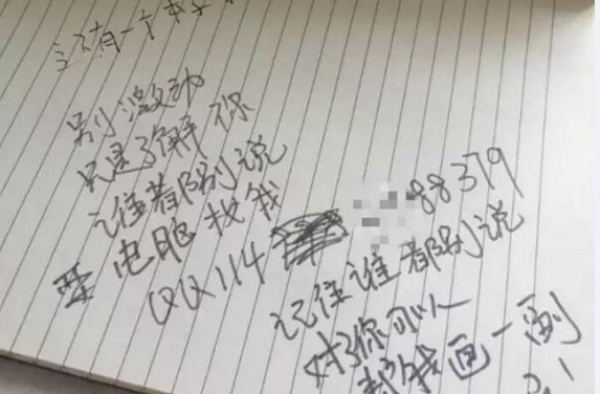 还有一个本
别激动
只是了解你
谁都别说
电脑找我
QQ114 88379
记住谁都别说
对了你可以
帮我画一副